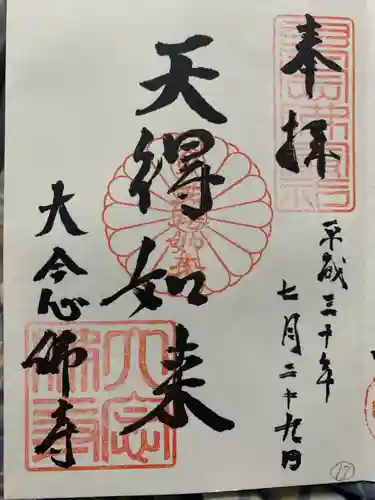 奉拝
平成三十年
七月二十九日
天得如来
大念佛寺
17